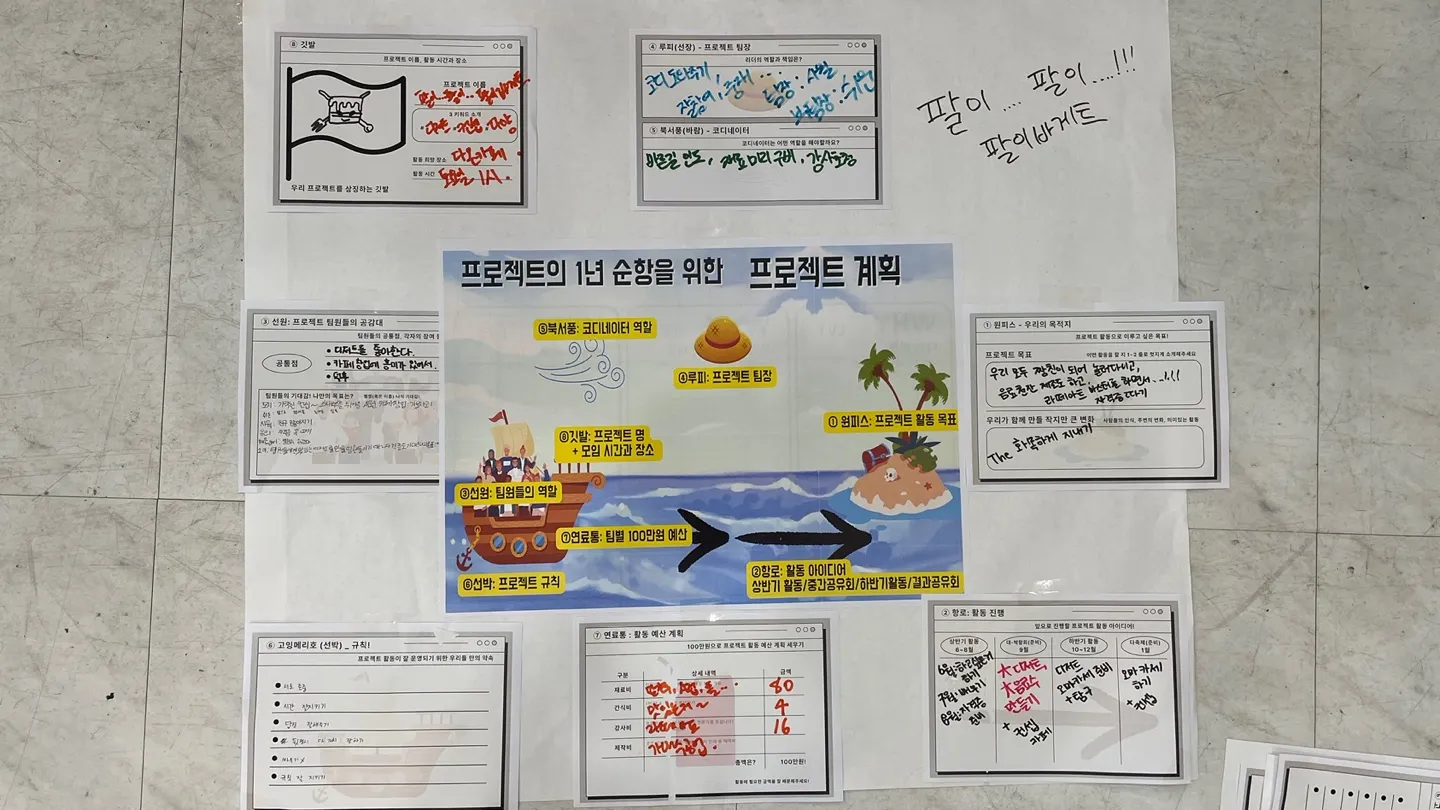 ⑧ 깃발
프로젝트 이름, 활동 시간과 장소
프로젝트 이름
3 키워드 소개
활동 희망 장소
다온카페
활동 시간
토요일 1시.
우리 프로젝트를 상징하는 깃발
④ 루피(선장) - 프로젝트 팀장
리더의 역할과 책임은?
코디 도와주기
중재 ...
팀장:
부팀장:
⑤ 북서풍(바람) - 코디네이터
코디네이터는 어떤 역할을 해야할까요?
바른길 인도, 재료 미리 구비, 강사 초청
팔이 .... 팔이 ....!!!
팔이바게트
프로젝트의 1년 순항을 위한 프로젝트 계획
⑤북서풍: 코디네이터 역할
④루피: 프로젝트 팀장
① 원피스: 프로젝트 활동 목표
⑧깃발: 프로젝트 명
+ 모임 시간과 장소
③선원: 팀원들의 역할
⑦연료통: 팀별 100만원 예산
⑥선박: 프로젝트 규칙
②항로: 활동 아이디어
상반기 활동/중간공유회/하반기활동/결과공유회
③ 선원: 프로젝트 팀원들의 공감대
팀원들의 공통점, 각자의 참여 동
공통점
• 디저트를 좋아한다.
• 카페 창업에 흥미가 있어서.
팀원들의 기대감! 나만의 목표는?
① 원피스 - 우리의 목적지
프로젝트 활동으로 이루고 싶은 목표!
프로젝트 목표
어떤 활동을 할 지 1~2 줄로 멋지게 소개해주세요
우리 모두 짱친이 되어 놀러다니고,
음료 제조도 하고, 버스킹도 하면서...!!!
라떼아트 자격증 따기
우리가 함께 만들 작지만 큰 변화
사람들의 인식, 주변의 변화, 의미있는 활동
The 화목하게 지내기
⑥ 고잉메리호 (선박) _ 규칙!
프로젝트 활동이 잘 운영되기 위한 우리들 만의 약속
서로 존중
시간 잘지키기
싸우기 X
규칙 잘 지키기
⑦ 연료통 : 활동 예산 계획
100만원으로 프로젝트 활동 예산 계획 세우기
구분 상세 내역 금액
재료비 80
간식비 맛있는거~ 4
강사비 16
제작비
총액은? 100만원!
활동에 필요한 금액을 잘 배분해주세요!
② 항로: 활동 진행
앞으로 진행할 프로젝트 활동 아이디어!
상반기 활동
6~8월
9월
하반기 활동
10~12월
1월
8월: 자격증
준비
★ 디저트,
★ 음료수
만들기
+
컨설팅
카페
디저트
오마카세 준비
+ 탐구
오마카세
하기
+ 컨설팅